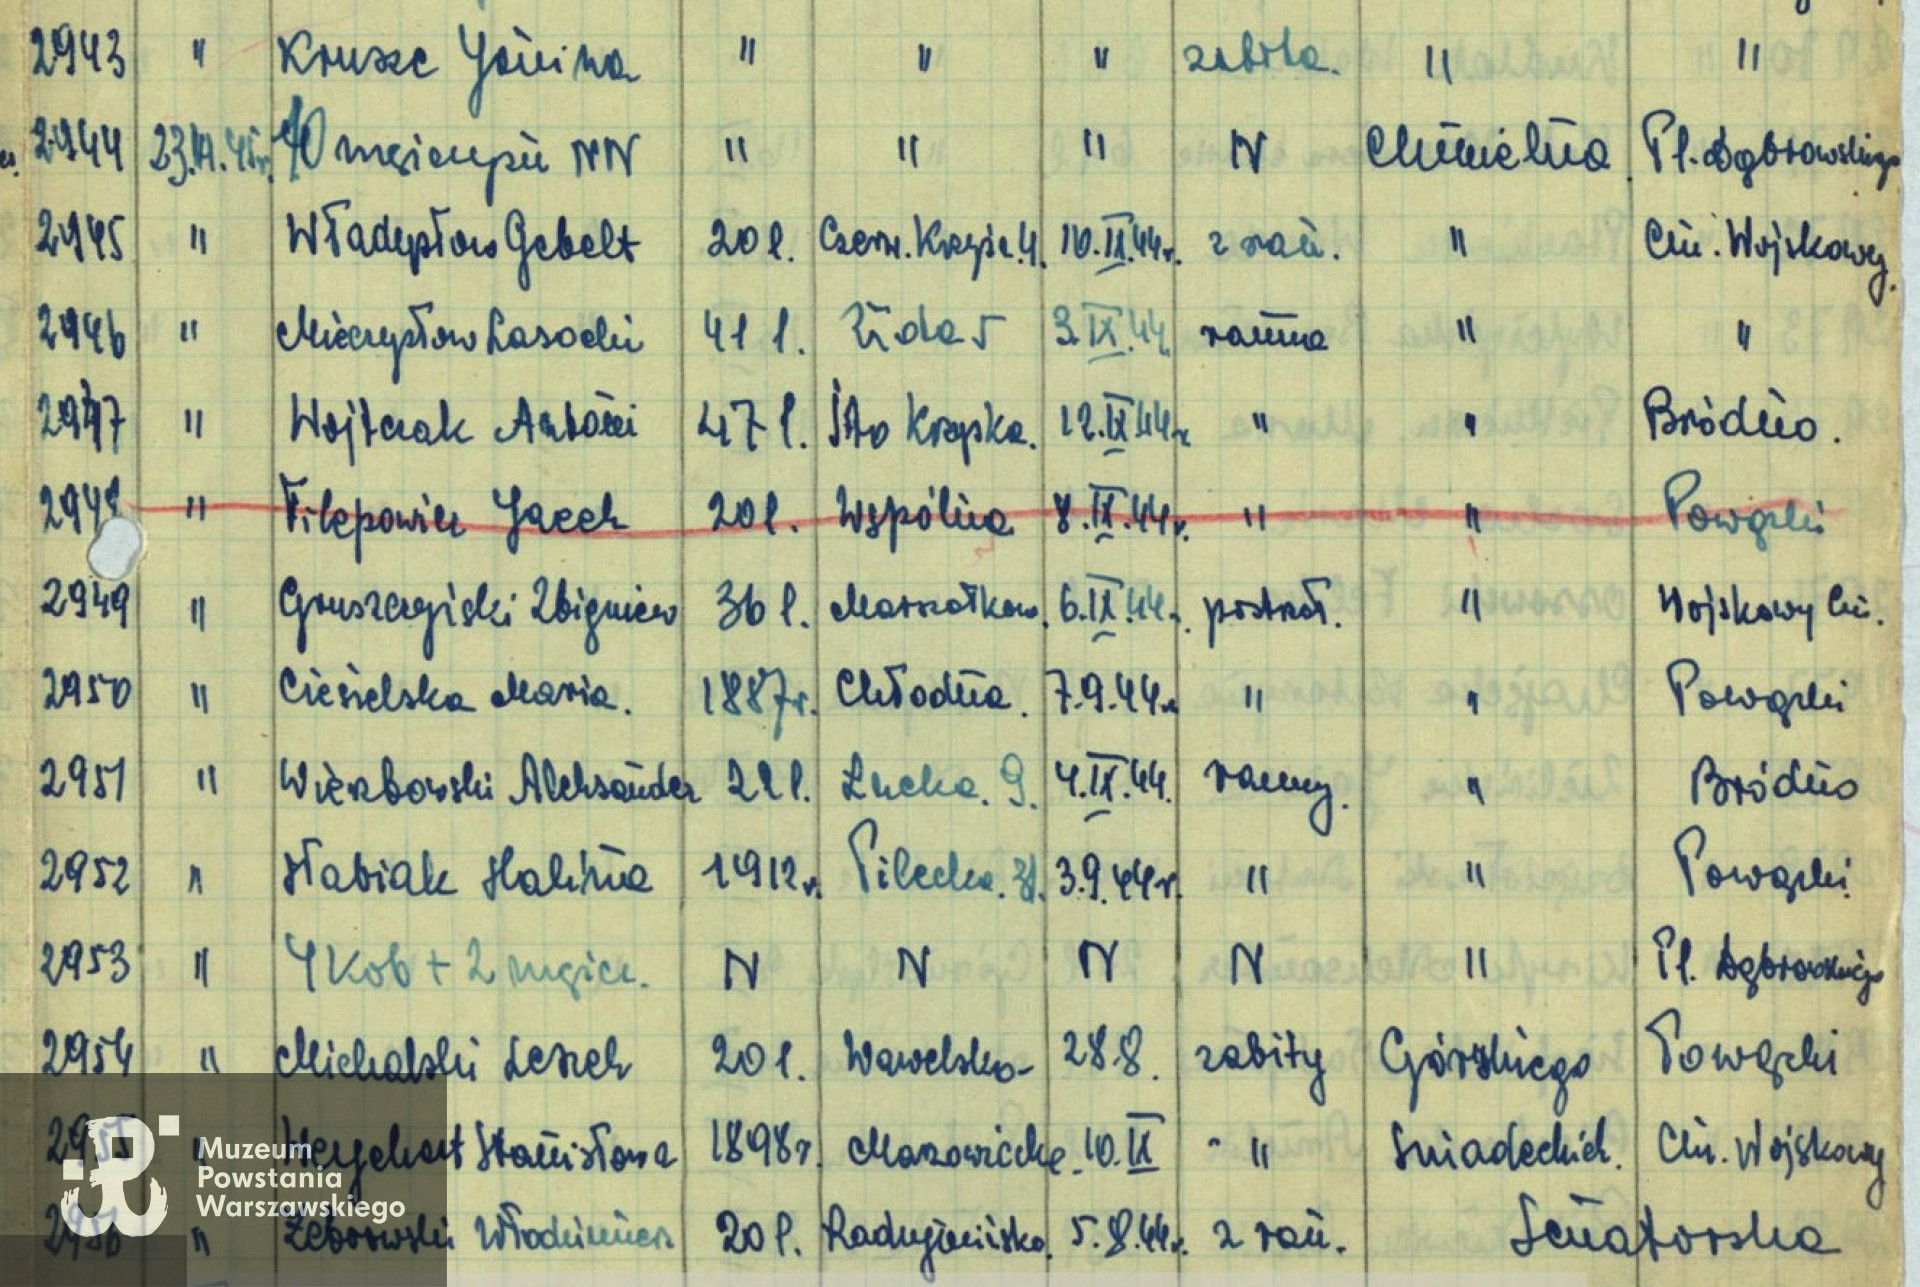 2943 " Krusze Janina " " " zabita. " "
2944 23.IV.45r. 40 mężczyzn NN " " " N Chmielna Pl. Dąbrowskiego
2945 " Władysław Gebelt 20 l. Czerw. Krzyż. 4. 10.IX.44r. z ran. " Cm. Wojskowy.
2946 " Mieczysław Lasocki 41 l. 5 3.IX.44. ranna " "
2947 " Wojtczak Antoni 47 l. Ś-to Krzyska. 12.IX.44r. " " Bródno.
2948 " Filipowicz Jacek 20 l. Wspólna 8.IX.44r. " " Powązki
2949 " Gruszczyński Zbigniew 36 l. Marszałkow. 6.IX.44r. postrzał. " Wojskowy Cm.
2950 " Ciesielska Maria. 1887r. Chłodna. 7.9.44r. " " Powązki
2951 " Wierzbowski Aleksander 22 l. Łucka. 9. 4.IX.44. ranny. " Bródno
2952 " Stabiak Halina 1912r. Pilecka. 31. 3.9.44r. " " Powązki
2953 " 4 Kob + 2 mężcz. N N N N " Pl. Dąbrowskiego
2954 " Michalski Leszek 20 l. Wawelska- 28.8. zabity Górskiego Powązki
2955 " Stanisława 1898r. Mazowiecka. 10.IX - " Śniadeckich. Cm. Wojskowy
2956 " Żebrowski Włodzimierz 20 l. Radzymińska. 5.8.44r. z ran. Senatorska
Muzeum
Powstania
Warszawskiego